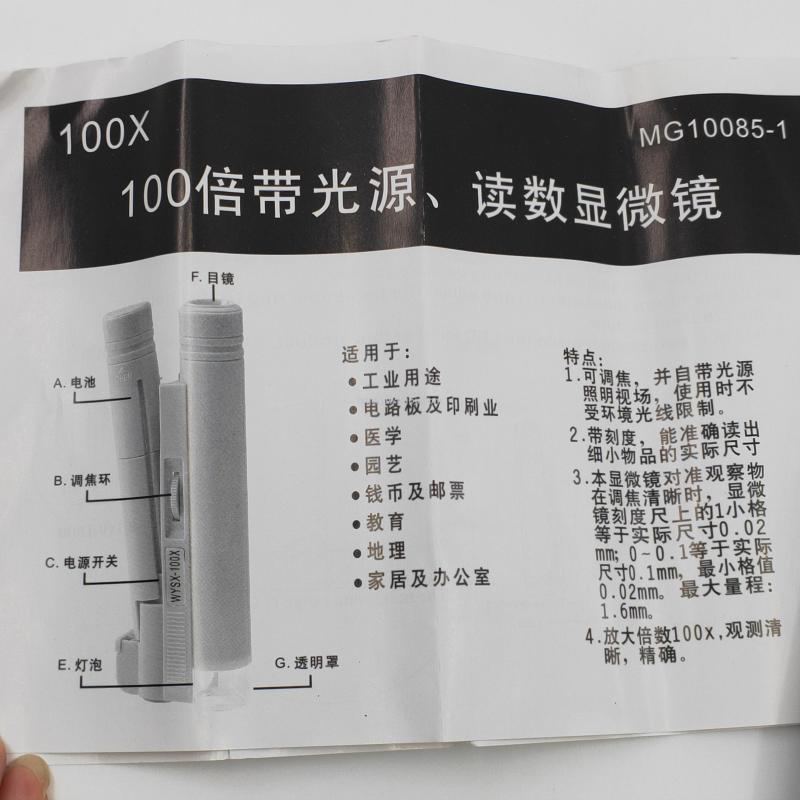 100X
MG10085-1
100倍带光源、读数显微镜
F. 目镜
A. 电池
B. 调焦环
C. 电源开关
WYSX-100X
E. 灯泡
G. 透明罩
适用于:
●工业用途
●电路板及印刷业
●医学
●园艺
●钱币及邮票
●教育
●地理
●家居及办公室
特点:
1.可调焦，并自带光源
照明视场，使用时不
受环境光线限制。
2.带刻度，能准确读出
细小物品的实际尺寸
3.本显微镜对准观察物
在调焦清晰时，显微
镜刻度尺上的1小格
等于实际尺寸0.02
mm；0~0.1等于实际
尺寸0.1mm，最小格值
0.02mm。最大量程：
1.6mm。
4.放大倍数100x,观测清
晰，精确。